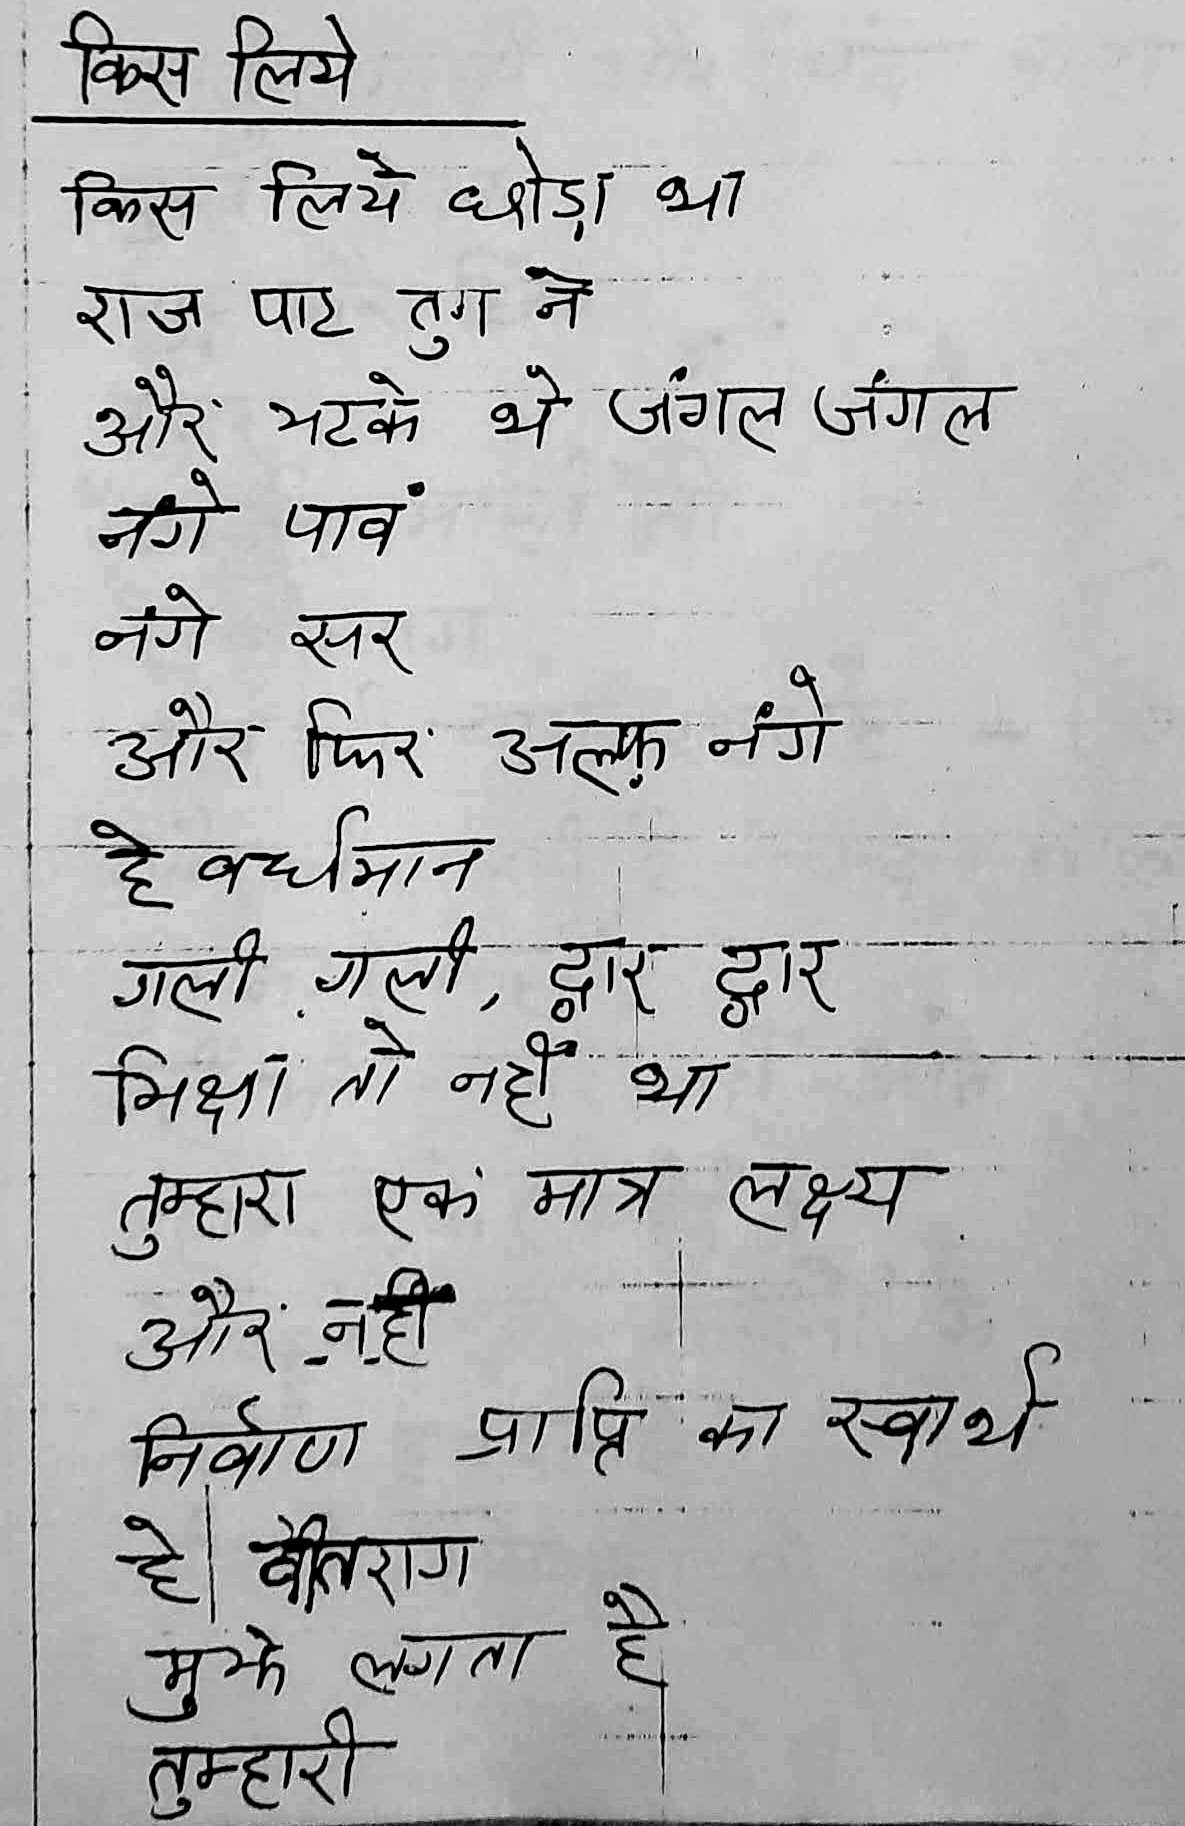 किस लिये
किस लिये छोड़ा था
राज पाट तुम ने
और भटके थे जंगल जंगल
नंगे पावं
नंगे सर
और फिर अल्फ़ नंगे
हे वर्धमान
गली गली, द्वार द्वार
भिक्षा तो नहीं था
तुम्हारा एक मात्र लक्ष्य
और नही
निर्वाण प्राप्ति का स्वार्थ
हे वीतराग
मुझे लगता है
तुम्हारी